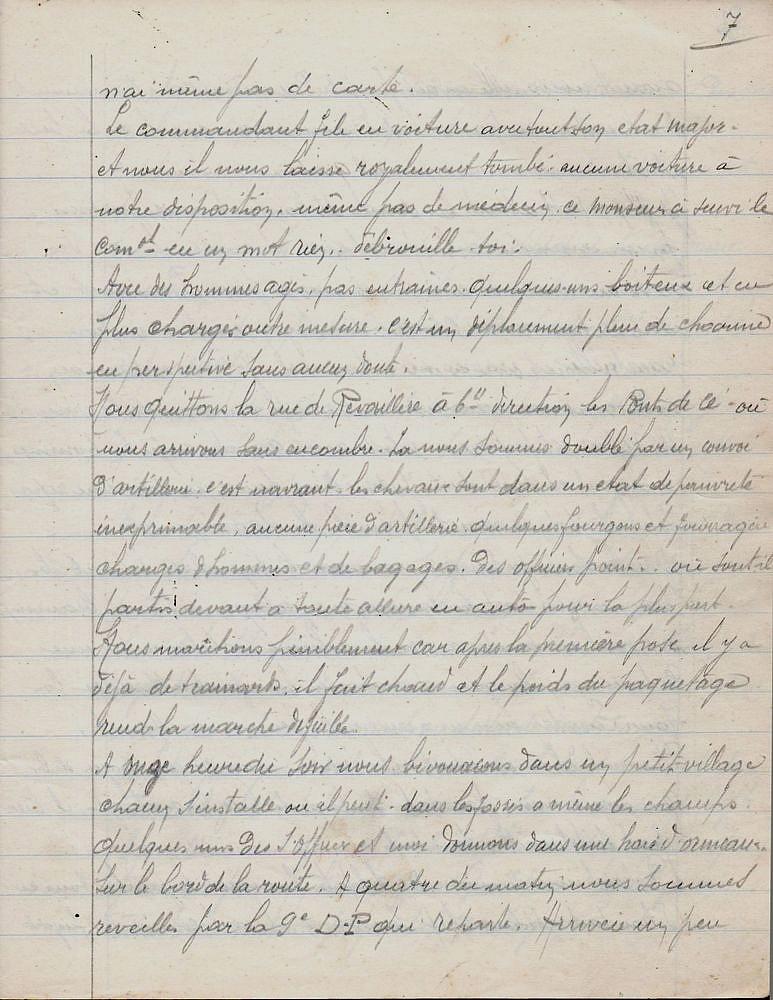 7
n'ai même pas de carte.
Le commandant file en voiture avec tout son etat major.
et nous il nous laisse royalement tombé. aucune voiture à
notre disposition, même pas de médecin, ce monsieur à suivi le
Comdt en un mot rien. débrouille toi.
Avec des hommes agés, pas entrainés. quelques-uns boiteux et en
plus chargés outre mesure. c'est un déplacement plein de charme
en perspective sans aucun doute.
Nous quittons la rue de Revaillère à 6h direction les Ponts de Cé où
nous arrivons sans encombre. La nous sommes doublé par un convoi
d'artillerie. c'est navrant les chevaux sont dans un etat de pauvreté
inexprimable, aucune pièce d'artillerie. quelques fourgons et fourragère
chargés d'hommes et de bagages. des officiers point. où sont-il
partis devant a toute allure en auto pour la plus part.
Nous marchions péniblement car après la première pose il y a
déjà de trainards, il fait chaud et le poids du paquetage
rend la marche difficile.
A onze heure du soir nous bivouacons dans un petit village
chacun s'installe ou il peut. dans les fossés a même les champs.
quelques uns des s/officiers et moi dormons dans une haie d'ormeaux.
Sur le bord de la route. A quatre du matin nous sommes
reveilles par la 9e D-P qui reparte. Arrivée un peu